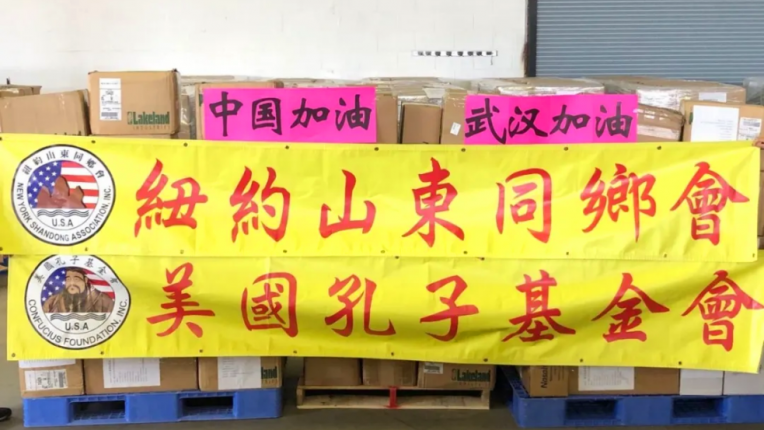 中国加油
武汉加油
Lakeland
INDUSTRIES
紐約山東同鄉會
紐約山東同鄉會
U.S.A
NEW YORK SHANDONG ASSOCIATION, INC.
美國孔子基金會
美國孔子基金會
U.S.A
CONFUCIUS FOUNDATION, INC.
Lakeland
Lakeland